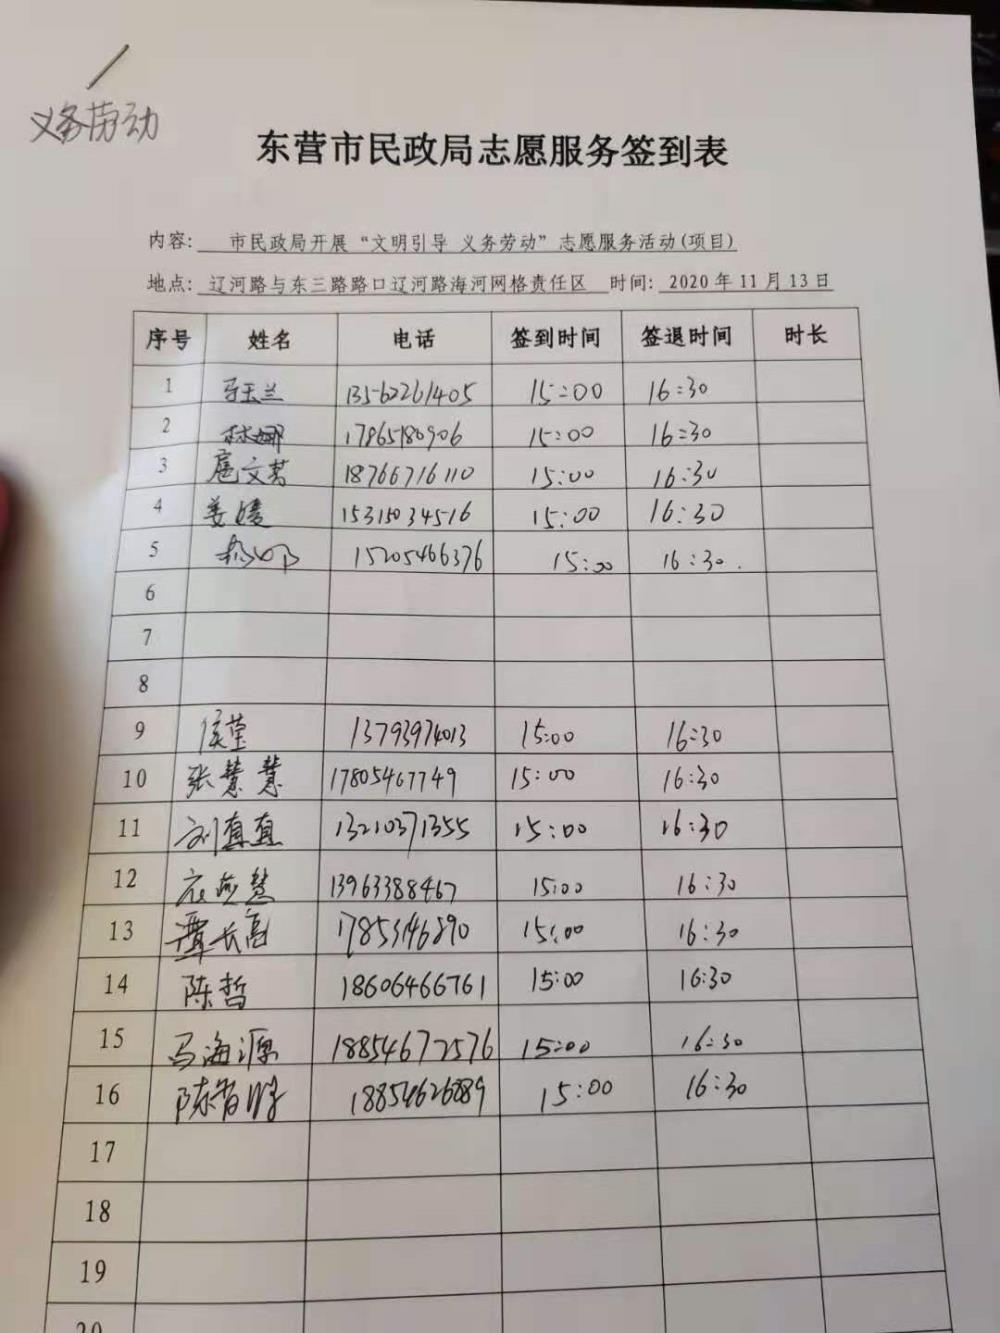 义务劳动
东营市民政局志愿服务签到表
内容: 市民政局开展“文明引导 义务劳动”志愿服务活动(项目)
地点: 辽河路与东三路路口辽河路海河网格责任区 时间: 2020年11月13日
序号 姓名 电话 签到时间 签退时间 时长
1 马玉兰 13562261405 15:00 16:30
2 林娜 17865180906 15:00 16:30
3 扈文君 18766716110 15:00 16:30
4 姜婧 15315034516 15:00 16:30
5 15205466376 15:00 16:30.
6
7
8
9 侯莹 13793974013 15:00 16:30
10 张慧慧 17805467749 15:00 16:30
11 刘真真 13210371355 15:00 16:30
12 慧 13963388467 15:00 16:30
13 覃长高 17853146890 15:00 16:30
14 陈哲 18606466761 15:00 16:30
15 马海源 18854672576 15:00 16:30
16 陈智 18854626889 15:00 16:30
17
18
19
20